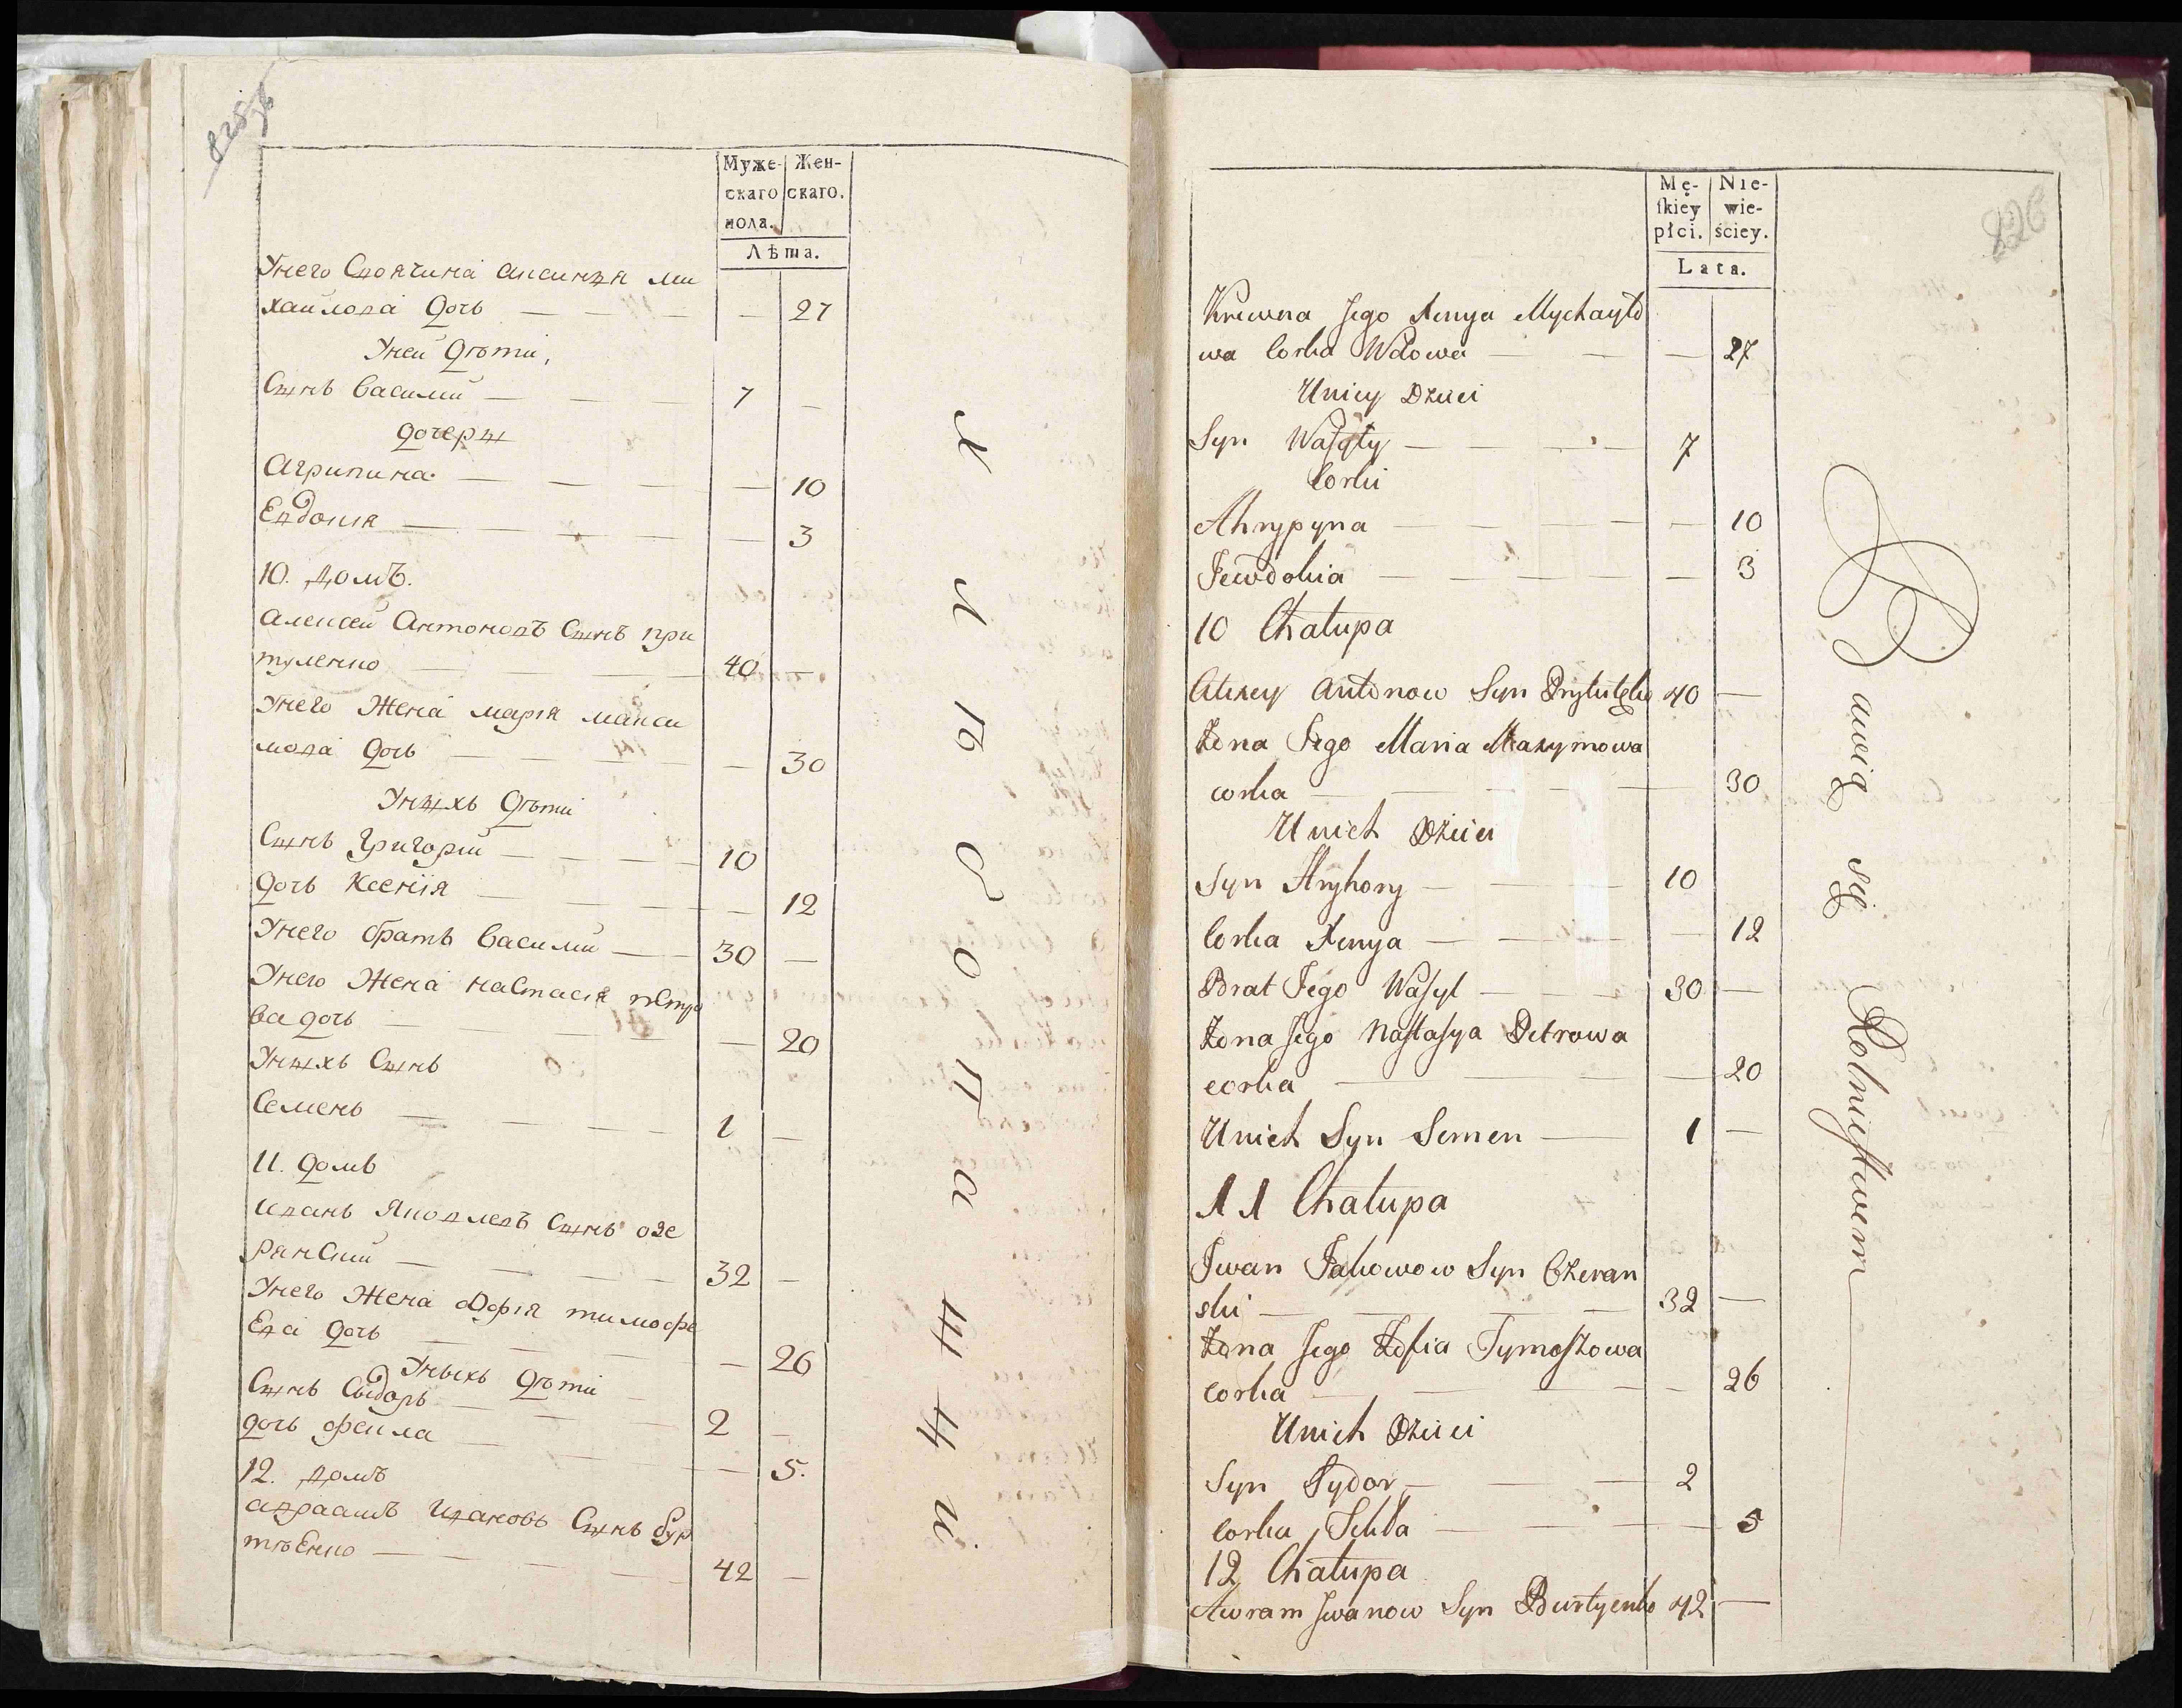 225об
Муже- Жен-
скаго скаго.
пола.
Лѣта.
Унего Своячина Аксинвя ми
хайлова дочь — — — — 27
Уней дѣти,
Сынъ Василий — — — 7 —
дочеры
Агрипина — — — — 10
Евдокия — — — — 3
10. домъ.
Алексей Антоновъ Сынъ при
туленко — — — 40 —
Унего Жена мария макси
мова дочь — — — — 30
Уныхъ дѣти
Сынъ Григорий — — — — 10
дочь Ксения — — — — 12
Унего братъ Василий — — 30 —
Унего Жена настасія петро
ва дочь — — — — 20
Уныхъ Сынъ
Семенъ — — — — 1 —
11. домъ
Иванъ Яковлевъ Сынъ озе
рянский — — — — 32 —
Унего Жена Софія тимофе
Ева дочь — — — — 26
Уныхъ дѣти
Сынъ Сыдоръ — — — 2 —
дочь фекла — — — — 5.
12. домъ
Авраамъ Ивановъ Сынъ бур
тѣЕнко — — — — 42 —
Хлѣбопашцы
Mę- Nie-
ſkiey wie-
płci. ściey.
Lata.
226
Krewna Jego Xenya Mychayło
wa Corka Wdowa — — — 27
Uniey Dzieci
Syn Waſyly — — — — 7
Corki
Ahrypyna — — — — — 10
Jewdokia — — — — — 3
10 Chałupa
Alexey Antonow Syn Prytulęko 40 —
Żona Jego Maria Maxymowa
corka — — — — 30
Unich Dzieci
Syn Hryhory — — — 10
Corka Xenya — — — — 12
Brat Jego Waſyl — — — 30 —
Żona Jego Naſtaſya Petrowa
corka — — — — 20
Unich Syn Semen — 1 —
11 Chałupa
Jwan Jakowow Syn Ozeran
ski — — — — 32 —
Żona Jego Zofia Tymoſzowa
corka — — — — 26
Unich Dzieci
Syn Sydor — — — 2
Corka Fekła — — — — 5
12 Chałupa
Awram Jwanow Syn Burtyenko 42 —
Bawią się Rolnictwem